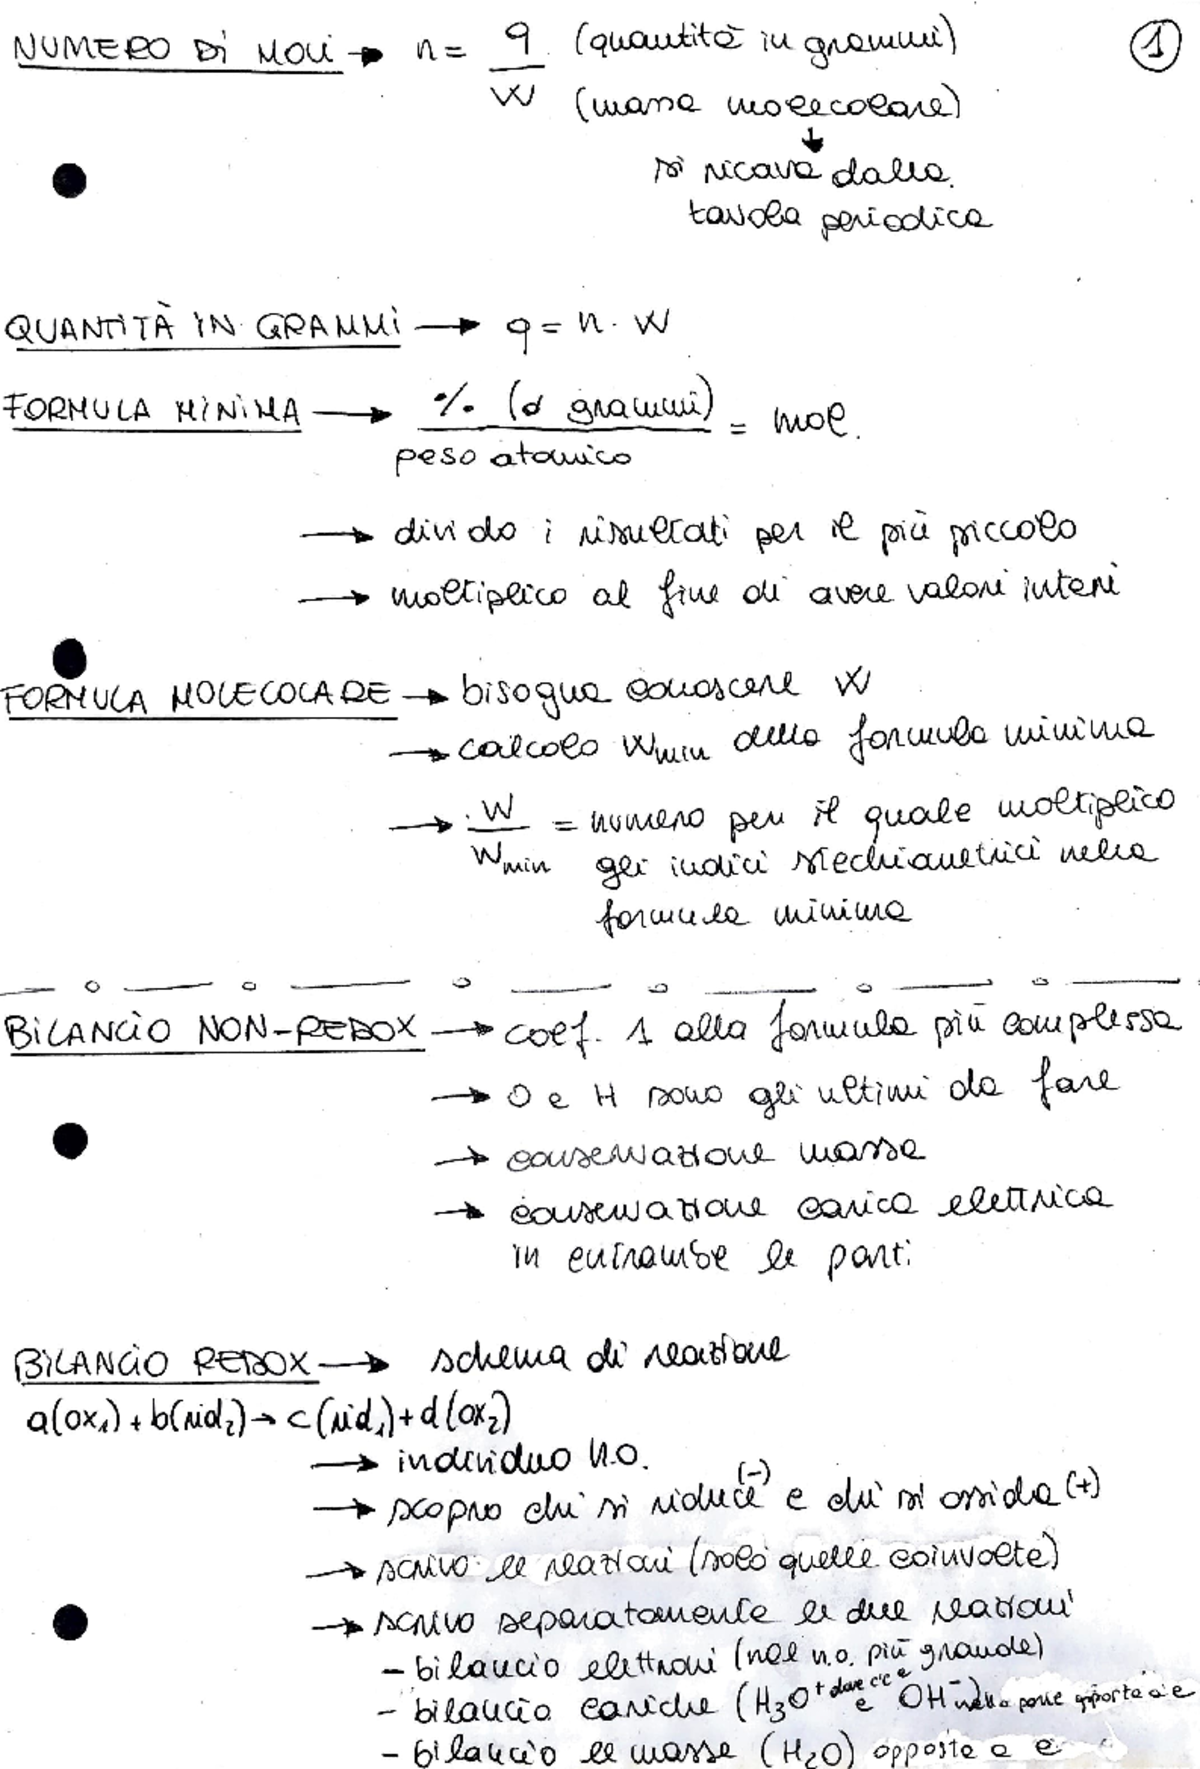 NUMERO DI MOLI → n = q (quantità in grammi) ①
W (massa molecolare)
↓
si ricava dalla
tavola periodica
QUANTITÀ IN GRAMMI → q = n · W
FORMULA MINIMA → % (o grammi) = mol.
peso atomico
→ divido i risultati per il più piccolo
→ moltiplico al fine di avere valori interi
FORMULA MOLECOLARE → bisogna conoscere W
→ calcolo Wmin della formula minima
→ W = numero per il quale moltiplico
Wmin gli indici stechiometrici nella
formula minima
BILANCIO NON-REDOX → coef. 1 alla formula più complessa
→ O e H sono gli ultimi da fare
→ conservazione massa
→ conservazione carica elettrica
in entrambe le parti
BILANCIO REDOX → schema di reazione
a(ox₁) + b(rid₂) → c(rid₁) + d(ox₂)
→ individuo n.o.
→ scopro chi si riduce (-) e chi si ossida (+)
→ scrivo le reazioni (solo quelle coinvolte)
→ scrivo separatamente le due reazioni
- bilancio elettroni (nel n.o. più grande)
- bilancio cariche (H₃O⁺ dove c'è e⁻ e OH⁻) nella parte opposta a e
- bilancio le masse (H₂O) opposte a e